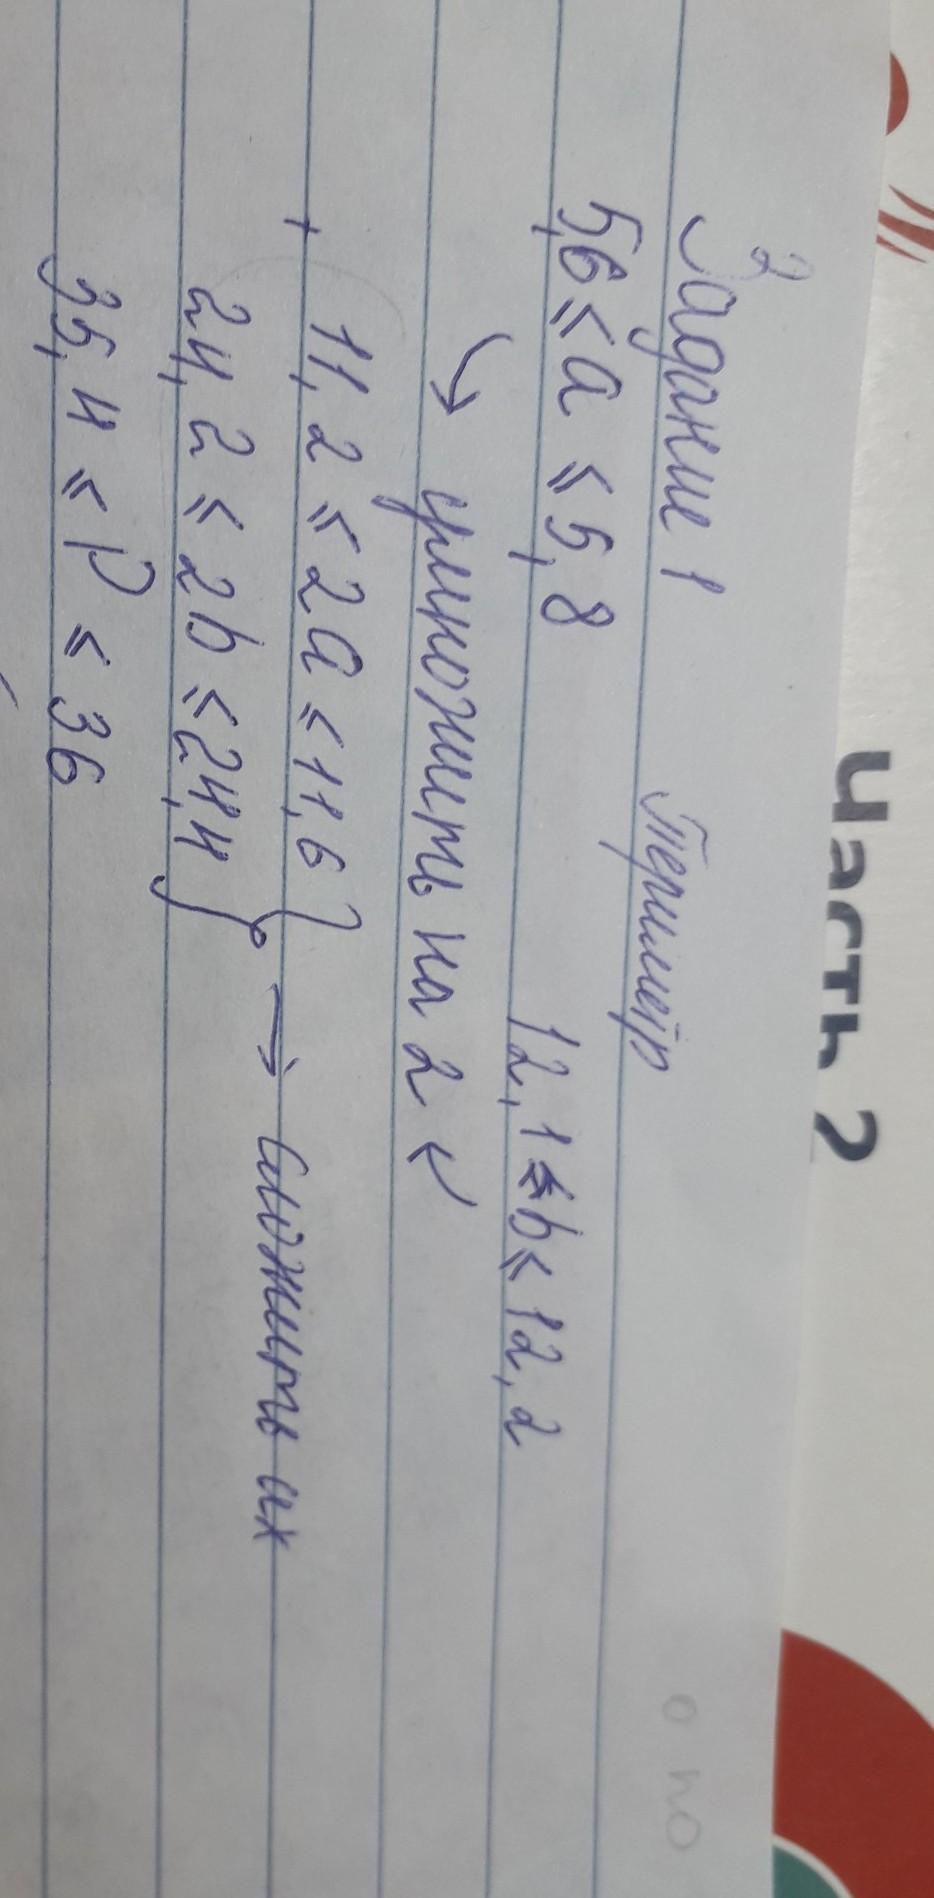 часть 2
Задание 1 Периметр
5,6 ≤ a ≤ 5,8 12,1 ≤ b ≤ 12,2
↘ умножить на 2 ↙
+ 11,2 ≤ 2a ≤ 11,6
24,2 ≤ 2b ≤ 24,4 } → сложить их
35,4 ≤ P ≤ 36